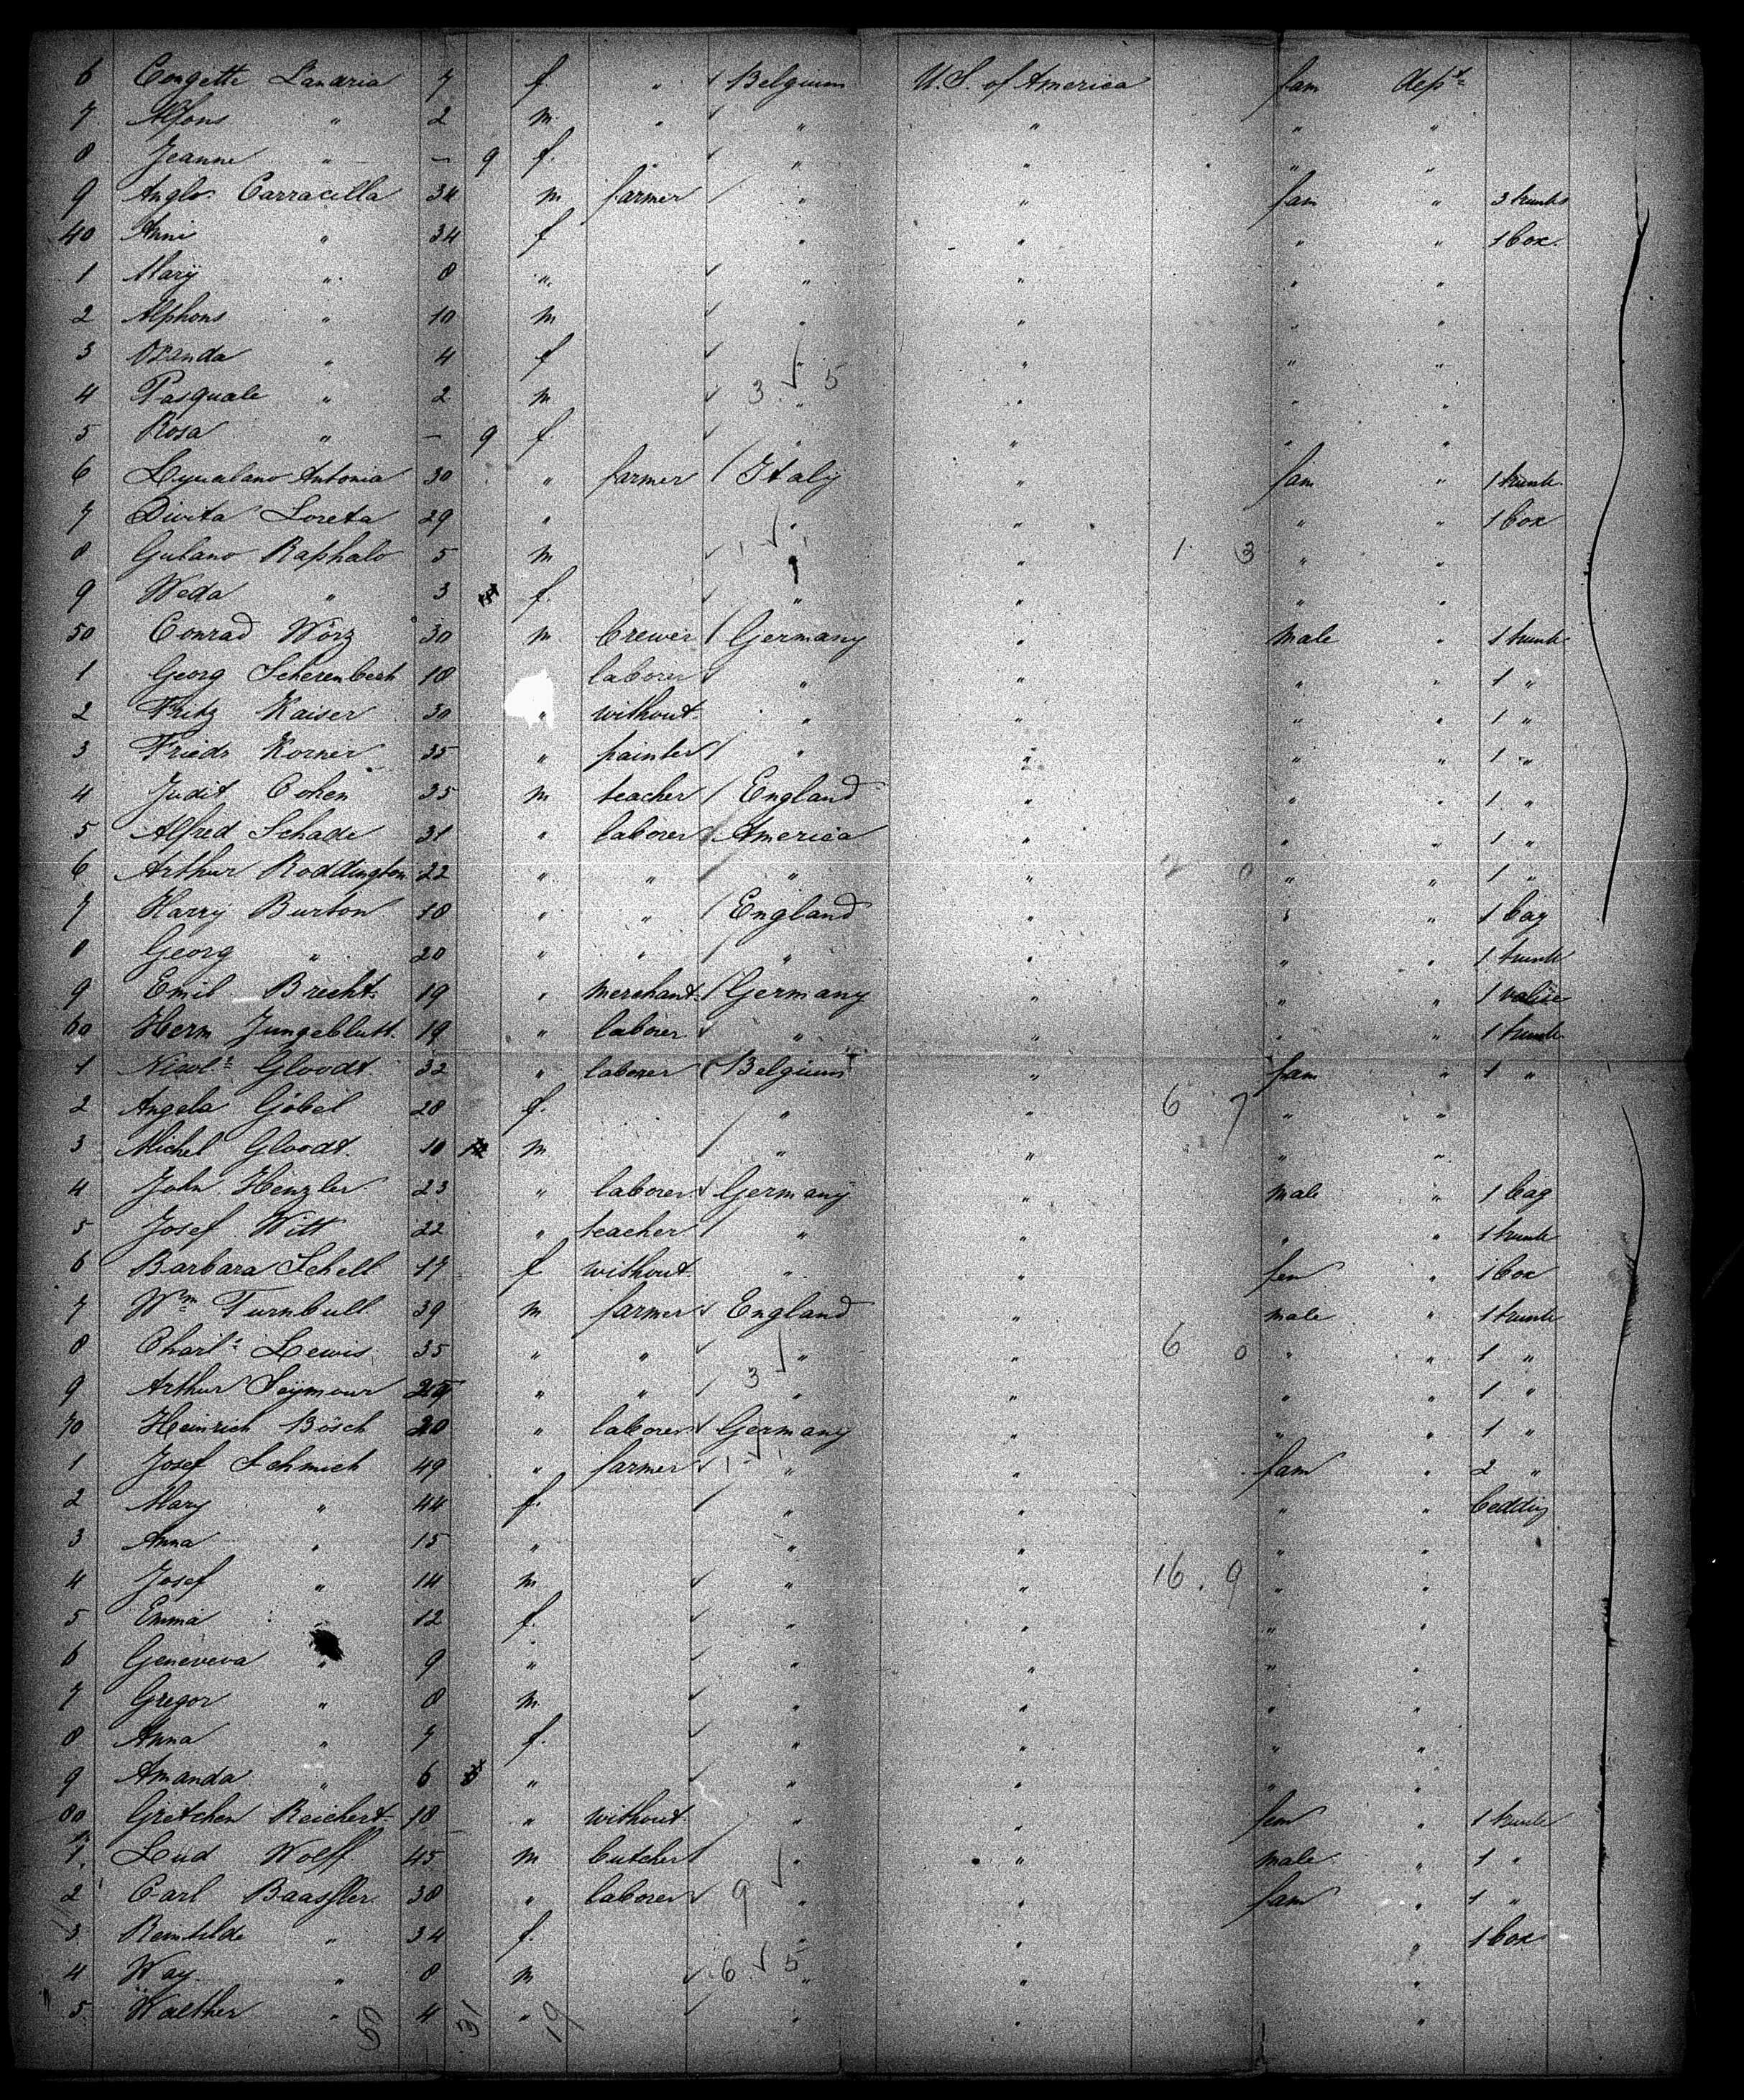 6 Congette Lanaria 7 f. " ✓ Belgium U.S. of America fam dep.t
7 Alfons " 2 m. " ✓ " " " "
8 Jeanne " — 9 f. " ✓ " " " "
9 Anglo Carracilla 34 m farmer / " " fam " 3 trunks
40 Anni " 34 f " " " " 1 box.
1 Mary " 8 " ✓ " " " "
2 Alphons " 10 m ✓ " " " "
3 Vzanda " 4 f ✓ " " " "
4 Pasquale " 2 m ✓ 3 ✓ 5 " " " "
5 Rosa " — 9 f. ✓ " " " "
6 Antonia 30 " farmer / Italy " fam " 1 trunk.
7 Divita Loreta 29 " " " " " 1 box
8 Gulano Raphalo 5 m ✓ 1 ✓ 1 " 1. 3 " "
9 Weda " 3 f. ✓ " " " "
50 Conrad Wörz 30 m brewer / Germany " male " 1 trunk
1 Georg Scherenbeck 18 laborer ✓ " " " " 1 "
2 Fritz Kaiser 30 " without. " " " " 1 "
3 Friedr Korner 35 " painter / " " " " 1 "
4 Judit Cohen 35 m teacher / England " " " 1 "
5 Alfred Schade 31 " laborer America " " " 1 "
6 Arthur Roddington 22 " " / " " 2 0 " " 1 "
7 Harry Burton 18 " " / England " " " 1 bag
8 Georg " 20 " " / " " " " 1 trunk
9 Emil Brecht. 19 " merchant. / Germany " " " 1 valise
60 Herm Jungeblutt. 19 " laborer ✓ " " " " 1 trunk
1 Nicol.s Gloodt 32 " laborer / Belgium " fam " 1 "
2 Angela Göbel 28 f. / " " 6 7 " "
3 Michel Gloodt. 10 m / " " " "
4 John Henzler 23 " laborer. ✓ Germany " male " 1 bag
5 Josef Witt 22 " teacher / " " " " 1 trunk
6 Barbara Schell 17 f without " " fem " 1 box
7 Wm Turnbull 39 m farmer ✓ England " male " 1 trunk
8 Charl.s Lewis 35 " " ✓ " " 6 0 " " 1 "
9 Arthur Seymour " " / 3 ✓ " " " " 1 "
70 Heinrich Bösch 20 " laborer ✓ Germany " " " 1 "
1 Josef Schmich 49 " farmer ✓ 1 ✓ 1 " " fam " 2 "
2 Mary " 44 f. / " " " " bedding
3 Anna " 15 " " " " "
4 Josef " 14 m ✓ " " 16. 9 " "
5 Emma " 12 f. ✓ " " " "
6 Geneveva " 9 " ✓ " " " "
7 Gregor " 8 m ✓ " " " "
8 Anna " 7 f. ✓ " " " "
9 Amanda " 6 " ✓ " " " "
80 Gretchen Reichert. 18 " without. " " fem " 1 trunk
1 Lud Wolff 45 m butcher / " " male " 1 "
2 Carl Baassler 38 " laborer ✓ 9 ✓ " " fam " 1 "
3 Reintilde " 34 f. " " " 1 box
4 Way " 8 m ✓ 6 ✓ 5 " " "
5 Walther " 4 " ✓ " " "
50 31 19